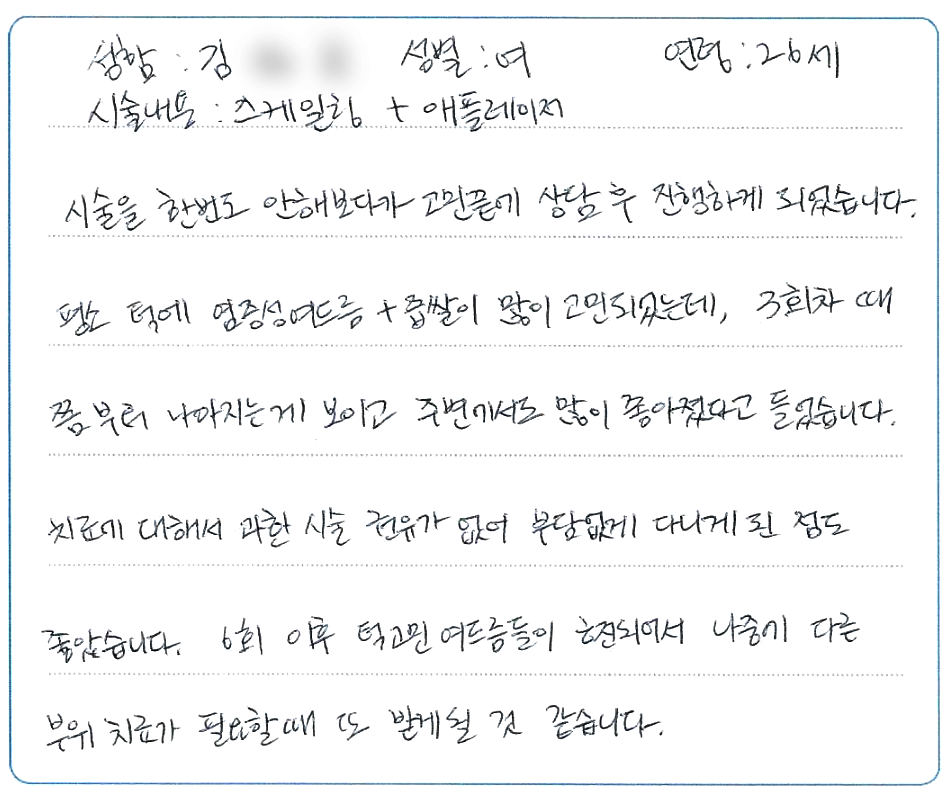 성함 : 김 성별 : 여 연령 : 26세
시술내용 : 스케일링 + 애플레이저
시술을 한번도 안해보다가 고민끝에 상담 후 진행하게 되었습니다.
평소 턱에 염증성여드름 + 좁쌀이 많이 고민되었는데, 3회차 때
쯤 부터 나아지는게 보이고 주변에서도 많이 좋아졌다고 들었습니다.
치료에 대해서 과한 시술 권유가 없어 부담없게 다니게 된 점도
좋았습니다. 6회 이후 턱고민 여드름들이 호전되어서 나중에 다른
부위 치료가 필요할때 또 받게될 것 같습니다.